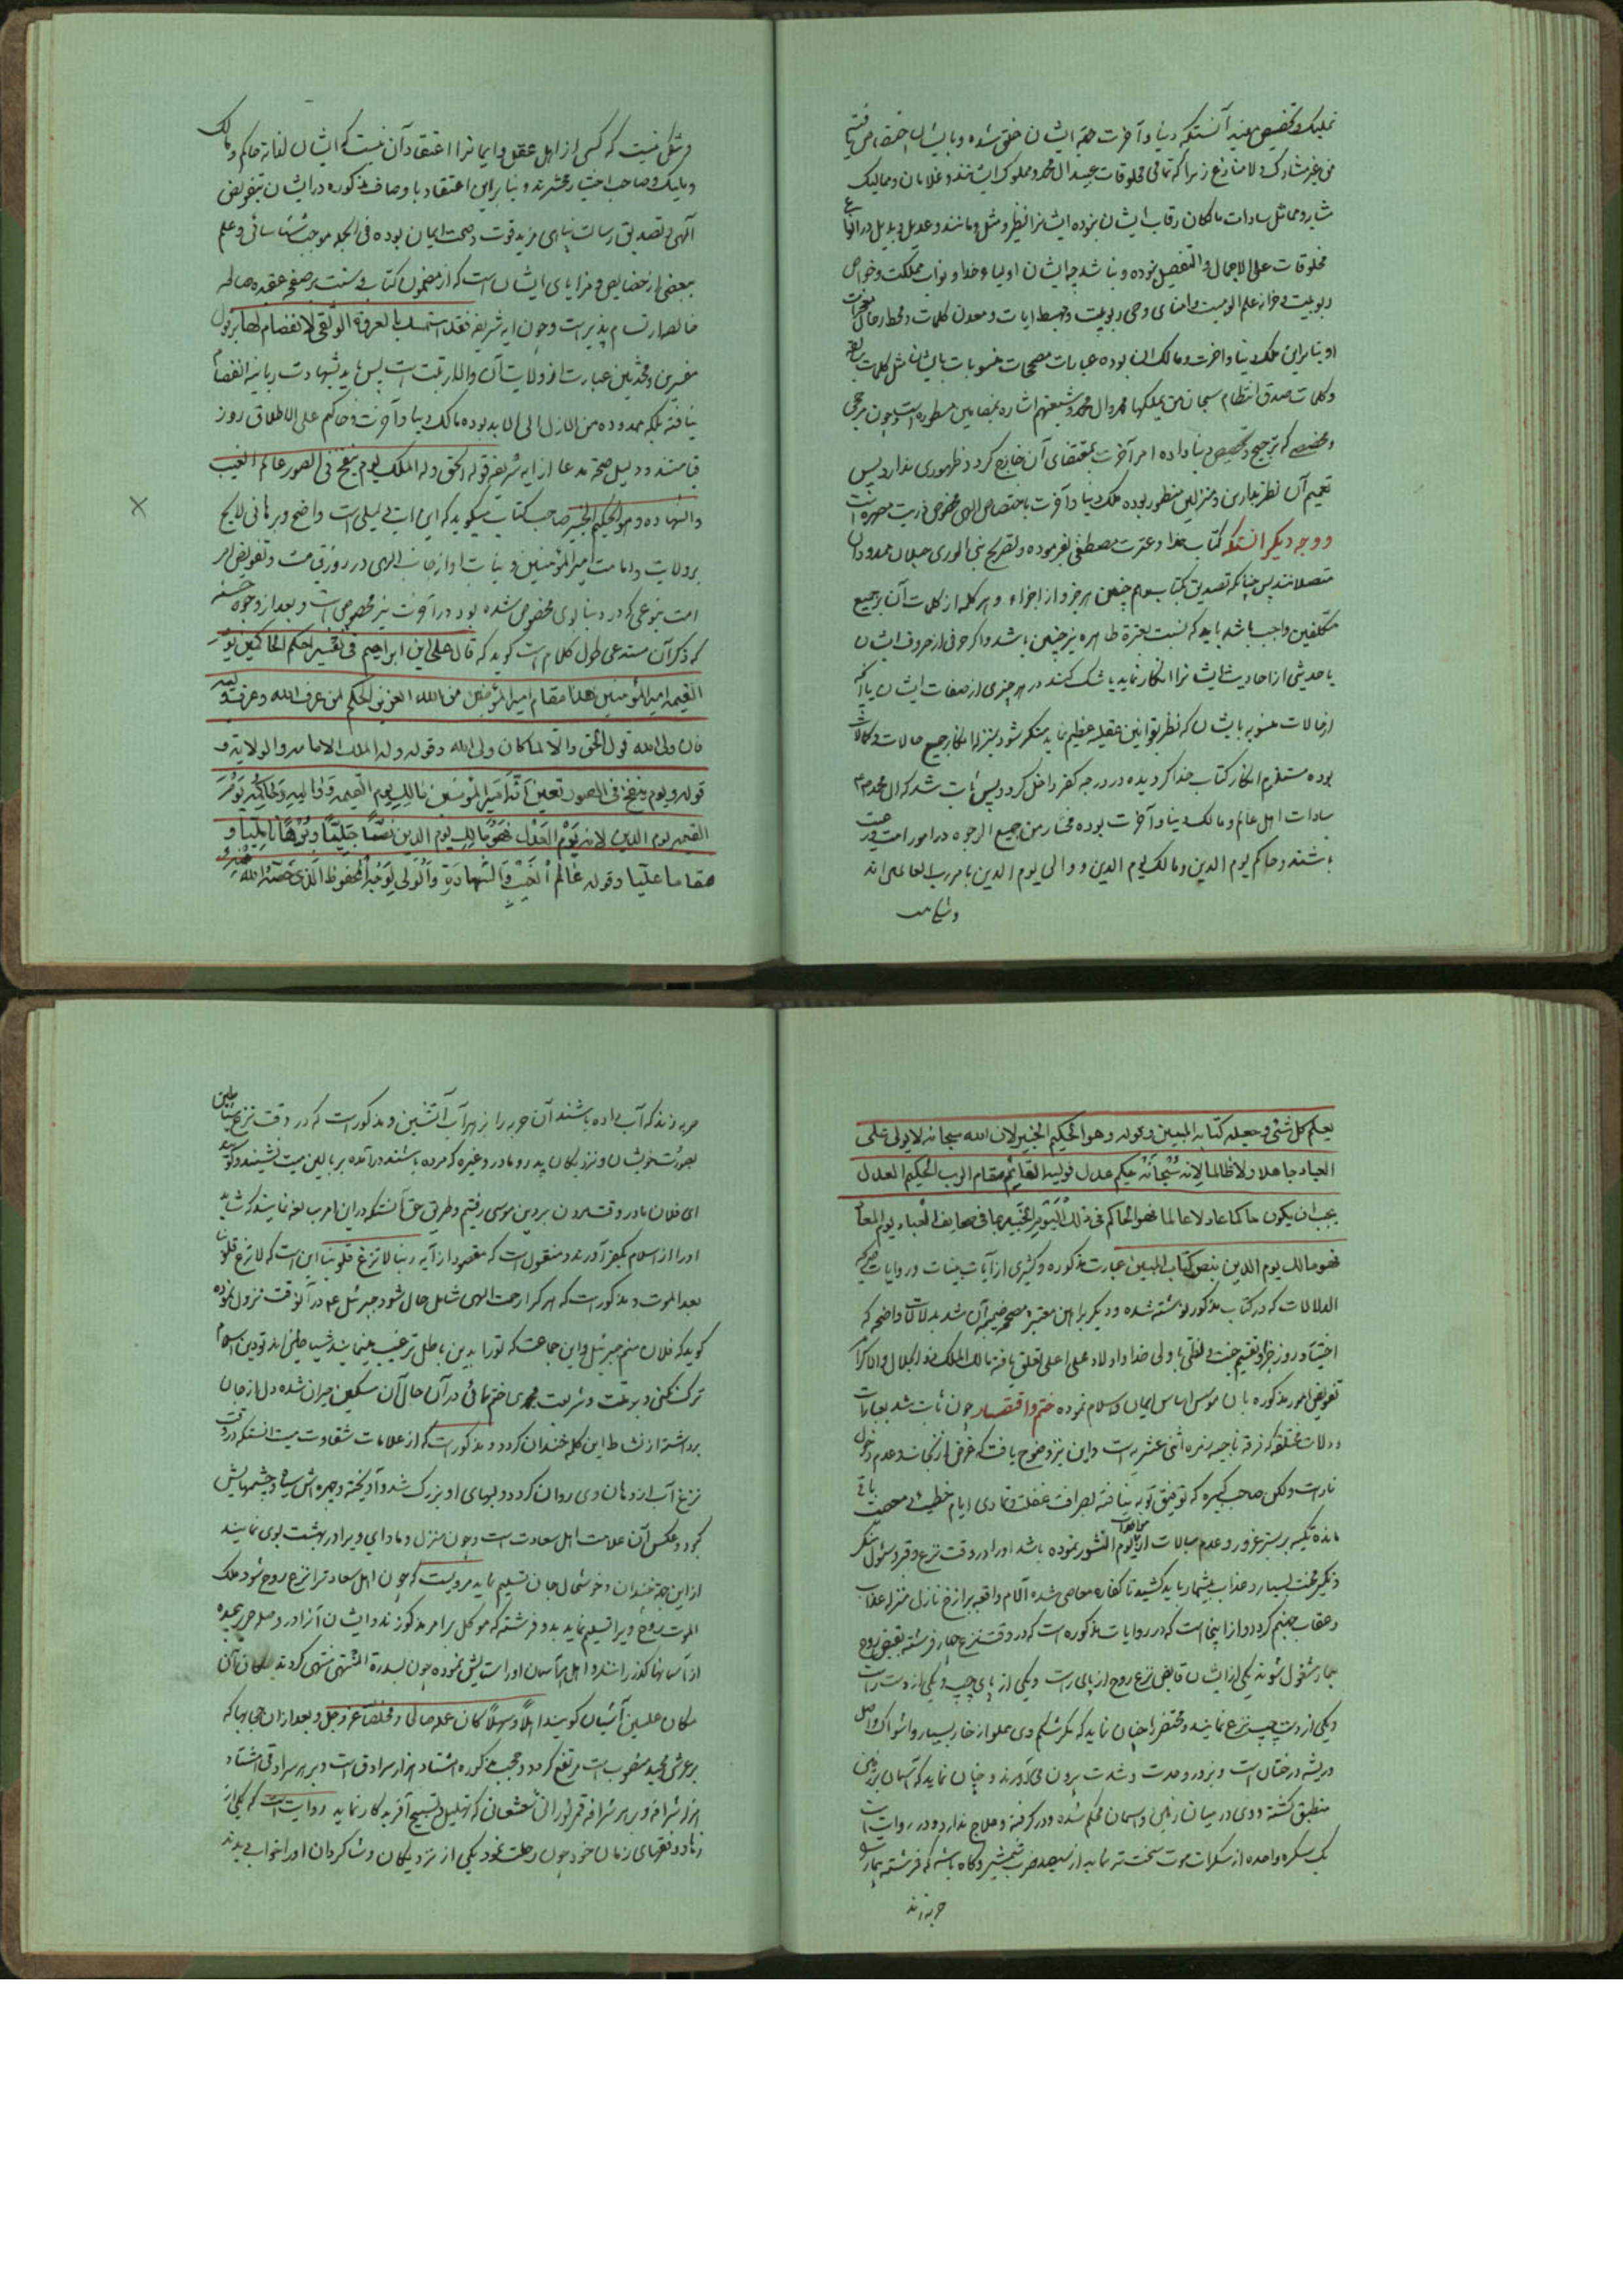 تملیک و تخصیص بینه آنستکه دنیا و آخرت حقه ایشان خلق شده و بایشان اختصاص یافته
من غیر مشارک و لا منازع زیرا که تمامی مخلوقات عبید ال محمد و مملوک ایشانند و غلامان و ممالیک
مشابه و مماثل سادات مالکان رقاب ایشان نبوده ایشانرا نظیر و مثل و مانند و عدیل و بدیل در انواع
مخلوقات علی الاجمال و التفصیل نبوده و نباشد چه ایشان اولیاء خدا و نواب مملکت و خواص
ربوبیت و خزانه علم الوهیت و امنای وحی ربوبیت و مهبط ایات و معدن کلمات و محط رحال
او بنابراین ملک دنیا و اخرت و مالک ان بوده عبارات مصححات منسوبات بایشان مثل کلمات
و کلمات صدق انتظام سبحان من یملکها محمد و ال محمد و شیعتهم اشاره بمضامین مسطوره است و چون مرجحی
و مخصصی که ترجیح و تخصیص دنیا داده امر آخرت بمقتضای آن خارج کرد و ظهوری ندارد پس
تعمیم آن نظر بدارین و منزلین منظور بوده ملک دنیا و آخرت باختصاص الهی مخصوص ذریت
و وجه دیگر انستکه کتاب خدا و عترت مصطفی بفرموده و تصریح نبی الوری حبلان ممدودان
متصلانند پس چنانکه تصدیق کتاب جمیع هر جزو از اجزاء و هر کلمه از کلمات آن بر جمیع
مکلفین واجب باشد باید که نسبت بعترة طاهره نیز چنین باشد و اگر حرفی از حروف ایشان
یا حدیثی از احادیث ایشانرا انکار نماید یا شک کند در هر چیزی از صفات ایشان یا آنچه
از حالات منسوبه بایشان که نظر بقوانین عقلیه عظیم نماید منکر شود بمنزله انکار جمیع حالات و کمالات
بوده مستلزم انکار کتاب خدا گردیده در درجه کفر داخل گردد پس ثابت شد که ال محمد
سادات اهل عالم و مالک دنیا و آخرت بوده مختار من جمیع الوجوه در امور امت
باشند و حاکم یوم الدین و مالک یوم الدین و والی یوم الدین بامر رب العالمین اند
و شکی نیست
و شکی نیست که کسی از اهل عقل و ایمانرا اعتقاد آن نیست که ایشان لغایة حاکم و مالک
و ملیک و صاحب اختیار محشرند و بنابراین اعتقاد باوصاف مذکوره در ایشان بتفویض
آلهی و تصدیق رسالت پناهی مزید قوت و صحت ایمان بوده فی الجمله موجب شناسائی و علم
ببعضی از خصایص و مزایای ایشان است که از مضمون کتاب و سنت بر صفحه عقیده صالحه
خالص ارتسام پذیر است و چون ایه شریفه فقد استمسک بالعروة الوثقی لا انفصام لها بر قول
مفسرین و محدثین عبارت از ولایت آن والا رتبت است پس باید بشهادت ربانیه انفصام
نیافته بلکه ممدوده من الازل الی الابد بوده مالک دنیا و آخرت و حاکم علی الاطلاق روز
قیامتند و دلیل صحة مدعا از ایه شریفه قوله الحق و له الملک یوم ینفخ فی الصور عالم الغیب
والشهاده و هو الحکیم الخبیر صاحب کتاب میگوید که این ایت دلیلی است واضح و برهانی لایح
بر ولایت و امامت امیر المؤمنین و نیابت او از جانب الهی در روز قیامت و تفویض امر
امت بنوعی که در دنیا بوی مخصوص شده بود در آخرت نیز مخصوص است و بعد از وجوه حسنه
که ذکر آن مستدعی طول کلام است گوید که قال علی ابن ابراهیم فی تفسیر احکم الحاکمین یوم
القیمه امیر المؤمنین هذا مقام امیر المؤمنین من الله العزیز الحکیم لمن عرف الله و عرف ولیه
فان ولی الله قول الحق و الا لما کان ولی الله و قوله و له الملک الامامه و الولایة و
قوله و یوم ینفخ فی الصور تعین انه امیر المؤمنین مالک یوم القیمه و والیه و حاکمه یوم
القیمه یوم الدین لانه یوم العدل فهو مالک یوم الدین نصا جلیا و برهانا و
مقاما علیا و قوله عالم الغیب و الشهادة و الولی لوحه المحفوظ الذی خصه الله
یعلم کل شئ و جعله کتابه المبین و قوله و هو الحکیم الخبیر لان الله سبحانه لا یولی علی
العباد جاهلا و لا ظالما لانه سبحانه حکیم عدل فولیه القائم مقام الرب الحکیم العدل
یجب ان یکون حاکما عادلا عالما فهو الحاکم فی ذلک الیوم الخبیر بما فی صحایف العباد یوم المعاد
فهو مالک یوم الدین بنص کتاب المبین عبارت مذکوره و کثیری از آیات بینات و روایات
الدلالات که در کتاب مذکور نوشته شده و دیگر براهین معتبره مصححه ضمیمه آن شد بدلالات واضحه که
اختیار روز جزا و تقسیم جنت و لظی با ولی خدا و اولاد علی اعلی تعلق یافته مالک الملک ذو الجلال و الاکرام
تفویض امور مذکوره بان موسس اساس ایمان و اسلام نموده ختم و اقتصار چون ثابت شد بعبارات
و دلالات مختلفه که فرقه ناجیه زمره اثنی عشریه است و این نیز وضوح یافت که غرض از نجات عدم دخول
نار است ولکن صاحب کبیره که توفیق توبه نیافته بصرافت غفلت و تمادی ایام خطیئه و معصیت باقی
مانده تکیه بر بستر غرور و عدم مبالات از مواخذات یوم النشور نموده باشد او را در وقت نزع و قبر و سئوال منکر
و نکیر محنت بسیار و عذاب بیشمار باید کشید تا کفاره معاصی شده آلام واقعه برازخ نازل منزله عذاب
و عقاب جهنم گردد و از اینجا است که در روایات مذکوره است که در وقت نزع چهار فرشته بقبض روح
بیمار مشغول شوند یکی از ایشان قابض نزع روح از پای راست و یکی از پای چپ و یکی از دست راست
و یکی از دست چپ نزع نمایند و محتضر را چنان نماید که مگر شکم وی مملو از خار بسیار و اشواک و اصل
و ریشه درختان است و بزور و حدت و شدت بیرون می آورند و چنان نماید که آسمان بر زمین
منطبق گشته و وی در میان زمین و اسمان محکم شده و در کرفته و علاج ندارد و در روایت است
یک سکره واحده از سکرات موت سخت تر نماید از سیصد ضرب شمشیر و گاه باشد که فرشته بیمار
حربه زند
حربه زند که آب داده باشند آن حربه را بزهر آب آتشین و مذکور است که در وقت نزع شیاطین
بصورت خویشان و نزدیکان پدر و مادر و غیره که مرده باشند در آمده بر بالین میت نشینند و گوید
ای فلان ما در وقت مردن بر دین موسی رفتیم و طریق حق آنستکه در این امر مبالغه نمایند که شاید
او را از اسلام بکفر آورند و منقول است که مقصود از آیه ربنا لا تزغ قلوبنا این است که لا تزغ قلوبنا
بعد الموت و مذکور است که هر که را رحمت الهی شامل حال شود جبرئیل ع در آنوقت نزول نموده
گوید که فلان منم جبرئیل و این جماعت که تو را بدین باطل ترغیب مینمایند شیاطین اند تو دین اسلام
ترک نکنی و بر ملت و شریعت محمدی ختم نمائی در آن حال آن مسکین حیران شده دل از جان
برداشته از نشاط این کلمه خندان گردد و مذکور است که از علامات شقاوت میت انستکه در وقت
نزع آب از دهان وی روان گردد و لبهای او بزرگ شد و آویخته و چهره اش سیاه و چشمهایش
کبود و عکس آن علامت اهل سعادت است و چون منزل و ماوای ویرا در بهشت بوی نمایند
از این جهة خندان و خوشحال جان تسلیم نماید مرویست که چون اهل سعادترا نزع روح شود ملک
الموت روح ویرا تسلیم نماید بدو فرشته که موکل بر امر مذکورند و ایشان آنرا در وصله حریر پیچیده
از آسمانها گذرانند و اهل آسمان او را ستایش نموده چون بسدرة المنتهی منتهی گردند
مکان علیین آشیان گویند اهلا و سهلا کان عمله صالحا و مخلصا عز و جل و بعد از ان حجابها که
بر عرش مجید منصوب است مرتفع گردد و حجب مذکوره هشتاد هزار سرادق است و بر هر سرادقی هشتاد
هزار شرافه و بر هر شرافه قمر نورانی شعشعانی که تهلیل و تسبیح آفریدگار نماید روایت است که یکی از
زهاد و فقهای زمان خود چون رحلت نمود یکی از نزدیکان و شاگردان او را بخواب دیدند